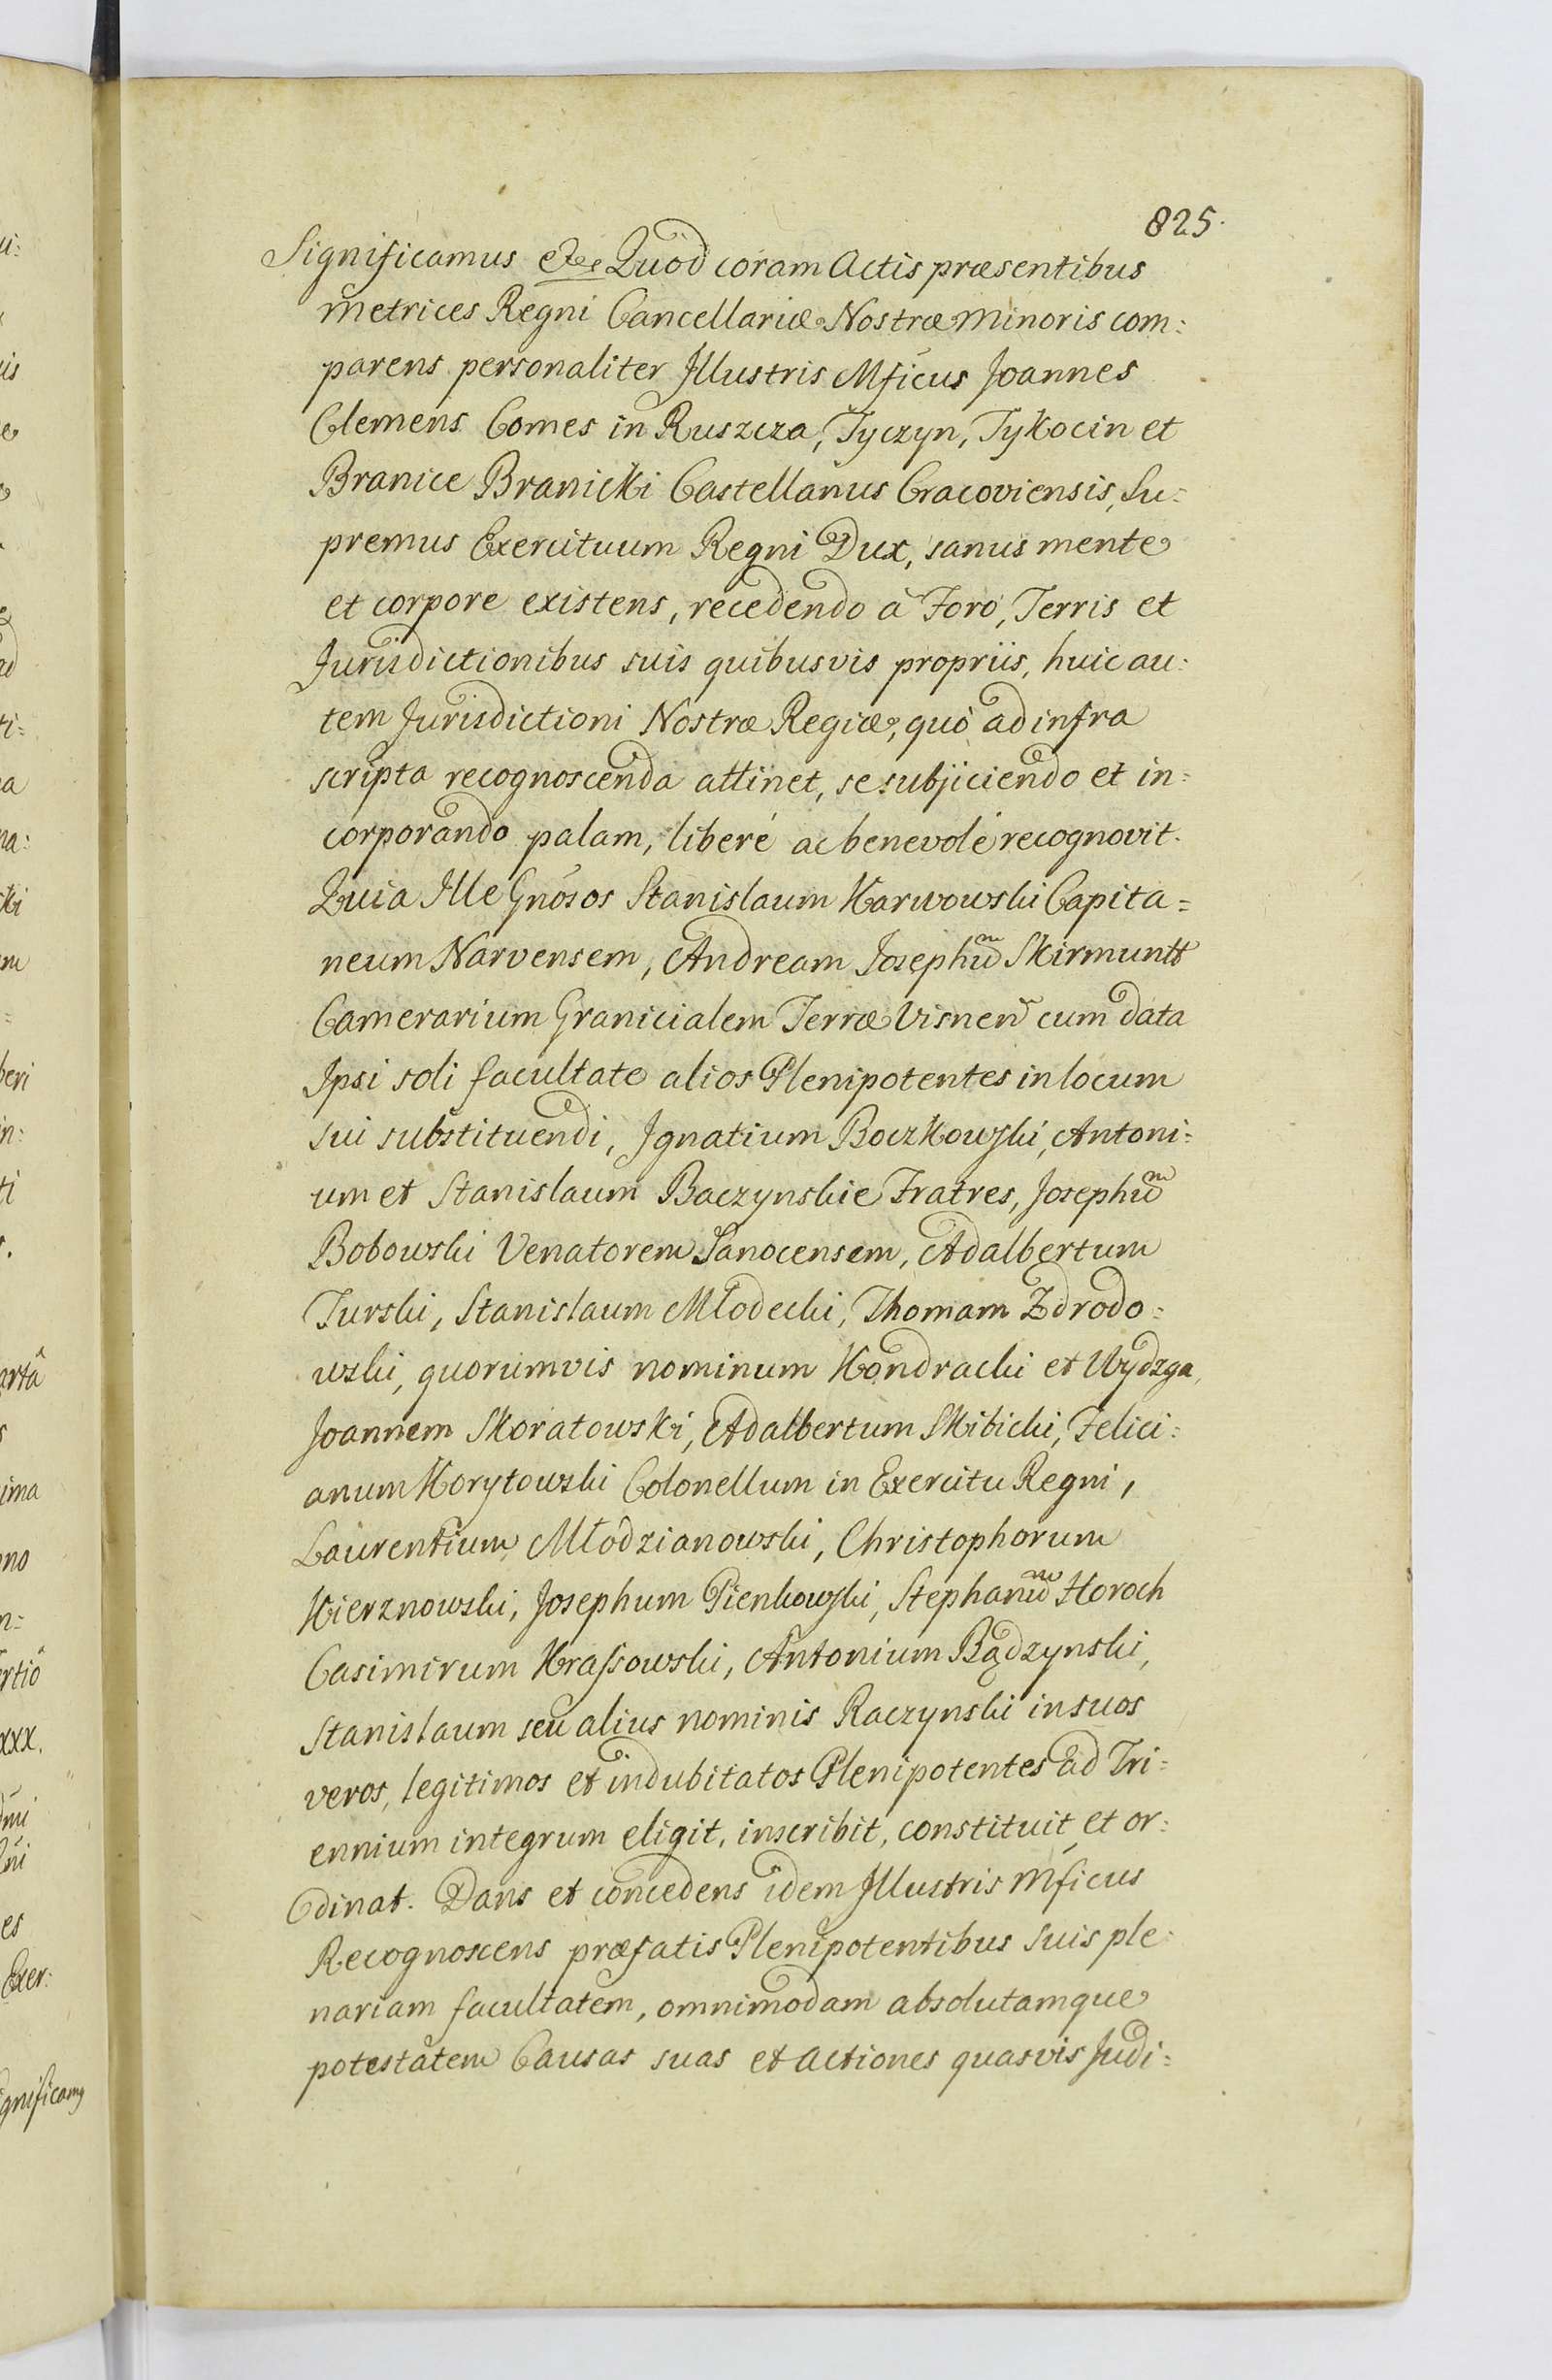 825.
Significamus etc Quod coram Actis præsentibus
metrices Regni Cancellariæ Nostræ Minoris com:
parens personaliter Illustris Mficus Joannes
Clemens Comes in Ruszcza, Tyczyn, Tykocin et
Branice Branicki Castellanus Cracoviensis, Su:
premus Exercituum Regni Dux, sanus mente
et corpore existens, recedendo à Foro, Terris et
Jurisdictionibus suis quibusvis propriis, huic au:
tem Jurisdictioni Nostræ Regiæ, quò ad infra
scripta recognoscenda attinet, se subjiciendo et in=
corporando palam, liberé ac benevolé recognovit.
Quia Ille Gnósos Stanislaum Karwowski Capita=
neum Narvensem, Andream Josephum Skirmuntt
Camerarium Granicialem Terræ Visnen cum data
Ipsi soli facultate alios Plenipotentes in locum
sui substituendi, Ignatium Boczkowski, Antoni=
um et Stanislaum Baczynskie Fratres, Josephum
Bobowski Venatorem Sanocensem, Adalbertum
Turski, Stanislaum Młodecki, Thomam Zdrodo=
wski, quorumvis nominum Kondracki et Wydzga,
Joannem Skoratowski, Adalbertum Skibicki, Felici=
anum Korytowski Colonellum in Exercitu Regni,
Laurentium Młodzianowski, Christophorum
Kierznowski, Josephum Pienkowski, Stephanum Horoch
Casimirum Krassowski, Antonium Bądzynski,
Stanislaum seu alius nominis Raczynski in suos
veros, legitimos et indubitatos Plenipotentes ad Tri=
ennium integrum eligit, inscribit, constituit et or=
dinat. Dans et concedens idem Illustris Mficus
Recognoscens præfatis Plenipotentibus suis ple=
nariam facultatem, omnimodam absolutamque
potestatem Causas suas et Actiones quasvis Judi=